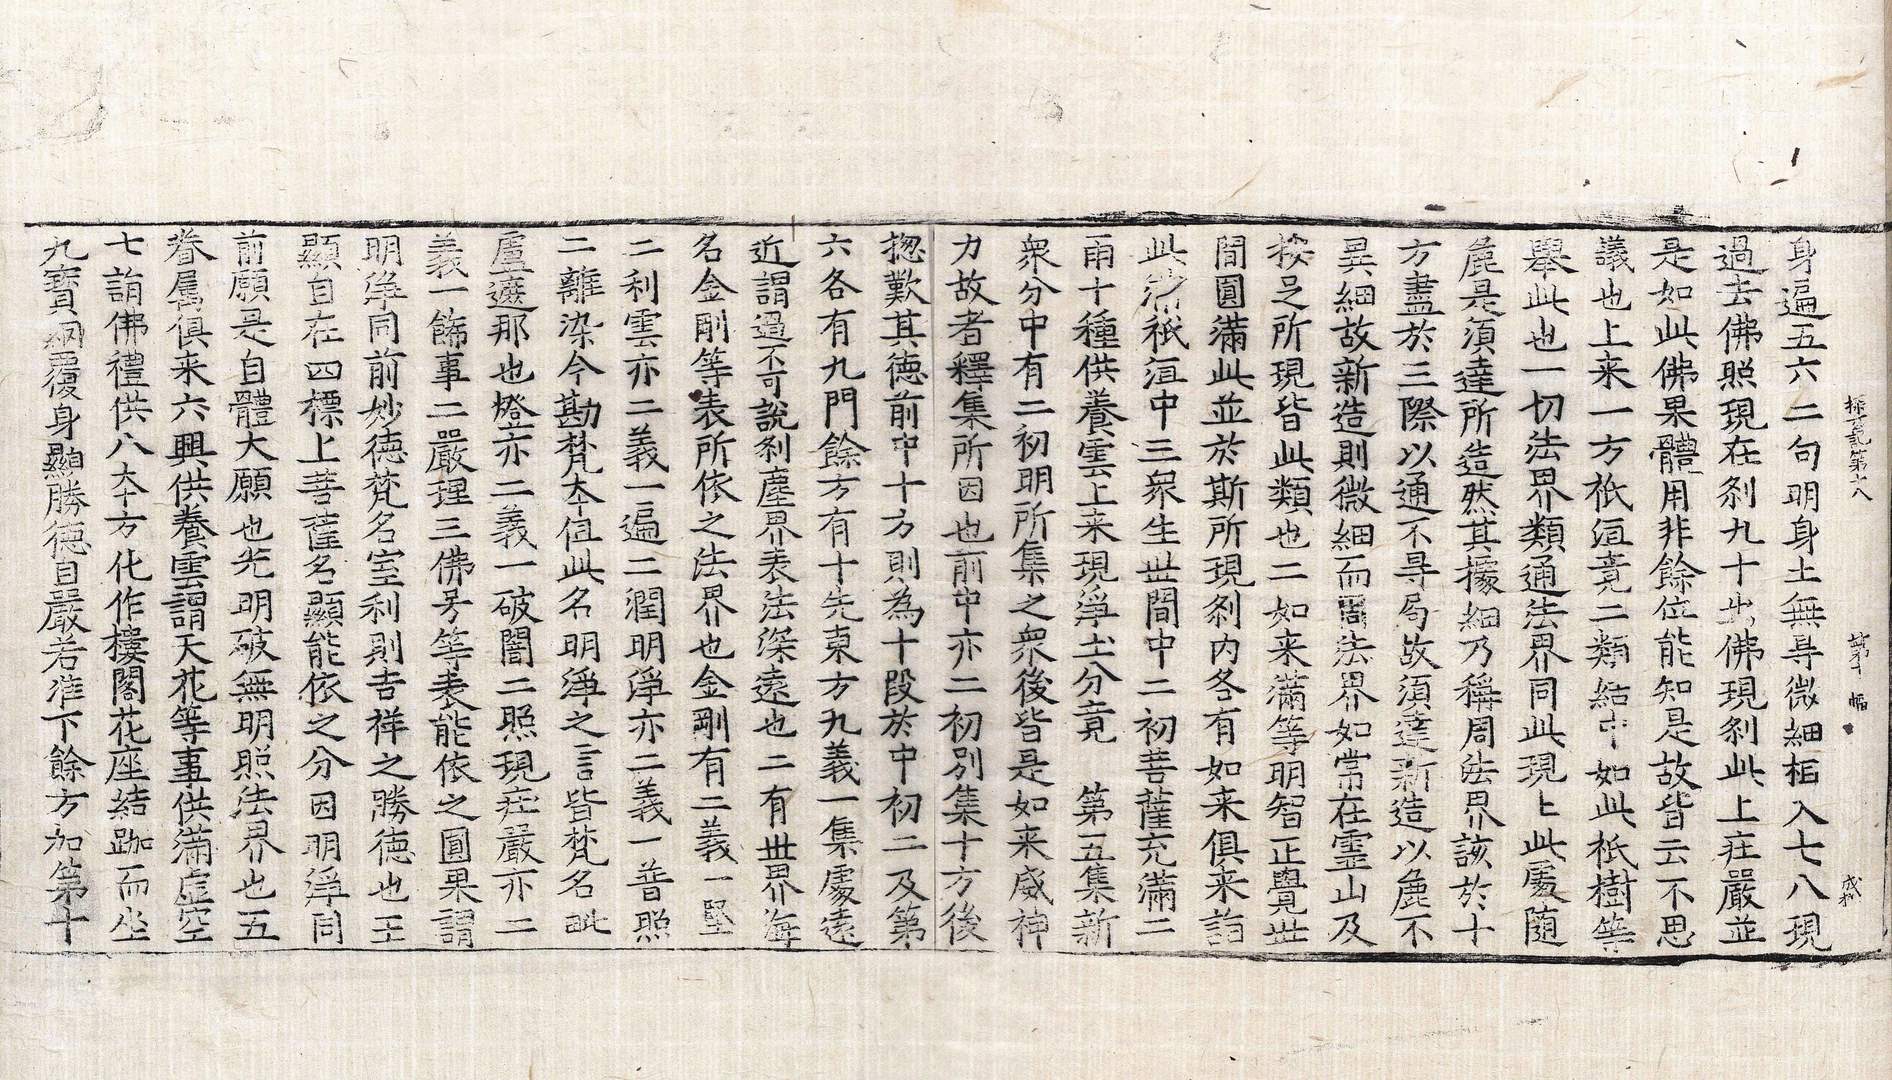 探玄記第十八　第十　幅　成
身遍五六二句明身土無㝵微細相入七八現
過去佛照現在刹九十出佛現刹此上莊嚴並
是如此佛果體用非餘位能知是故皆云不思
議也上来一方祇洹竟二類結中如此祇樹等
舉此也一切法界類通法界同此現上此處随
麁是須達所造然其據細乃稱周法界該於十
方盡於三際以通不㝵局故須達新造以麁不
異細故新造則微細而周法界如常在靈山及
按足所現皆此類也二如来滿等明智正覺世
間圓滿此並於斯所現刹内各有如来俱来詣
此滿祇洹中三衆生世間中二初菩薩充滿二
雨十種供養雲上来現淨土分竟　第五集新
衆分中有二初明所集之衆後皆是如来威神
力故者釋集所因也前中亦二初別集十方後
揔歎其徳前中十方則為十段於中初二及第
六各有九門餘方有十先東方九義一集處遠
近謂過不可說刹塵界表法深遠也二有世界海
名金剛等表所依之法界也金剛有二義一堅
二利雲亦二義一遍二潤明淨亦二義一普照
二離染今勘梵本但此名明淨之言皆梵名毗
盧遮那也燈亦二義一破闇二照現莊嚴亦二
義一飾事二嚴理三佛号等表能依之圓果謂
明淨同前妙徳梵名室利則吉祥之勝徳也王
顯自在四標上菩薩名顯能依之分因明淨同
前願是自體大願也光明破無明照法界也五
眷屬俱来六興供養雲謂天花等事供滿虚空
七詣佛禮供八本方化作樓閣花座結跏而坐
九寶網覆身顯勝徳自嚴若准下餘方加第十